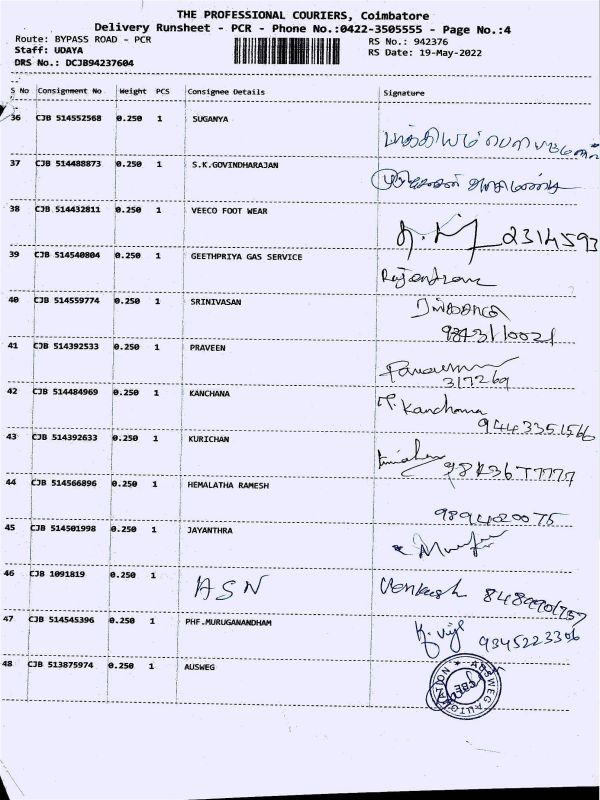 THE PROFESSIONAL COURIERS, Coimbatore
Delivery Runsheet - PCR - Phone No.:0422-3505555 - Page No.:4
Route: BYPASS ROAD - PCR RS No.: 942376
Staff: UDAYA RS Date: 19-May-2022
DRS No.: DCJB94237604
S No Consignment No Weight PCS Consignee Details Signature
36 CJB 514552568 0.250 1 SUGANYA
37 CJB 514488873 0.250 1 S.K.GOVINDHARAJAN
38 CJB 514432811 0.250 1 VEECO FOOT WEAR
2314593
39 CJB 514540804 0.250 1 GEETHPRIYA GAS SERVICE
40 CJB 514559774 0.250 1 SRINIVASAN
41 CJB 514392533 0.250 1 PRAVEEN
317269
42 CJB 514484969 0.250 1 KANCHANA
Kanchana
9443351566
43 CJB 514392633 0.250 1 KURICHAN
44 CJB 514566896 0.250 1 HEMALATHA RAMESH
9894020075
45 CJB 514501998 0.250 1 JAYANTHRA
46 CJB 1091819 0.250 1 ASN Venkesh
47 CJB 514545396 0.250 1 PHF.MURUGANANDHAM
9345223306
48 CJB 513875974 0.250 1 AUSWEG
AUSWEG AUTO CBE